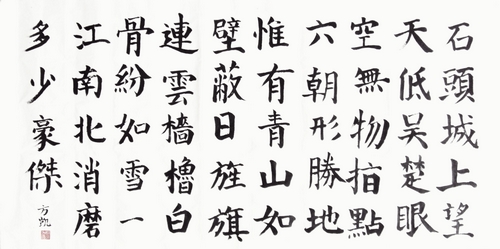 石頭城上望
天低吴楚眼
空無物指點
六朝形勝地
惟有青山如
壁蔽日旌旗
連雲檣櫓白
骨紛如雪一
江南北消磨
多少豪傑
方凱